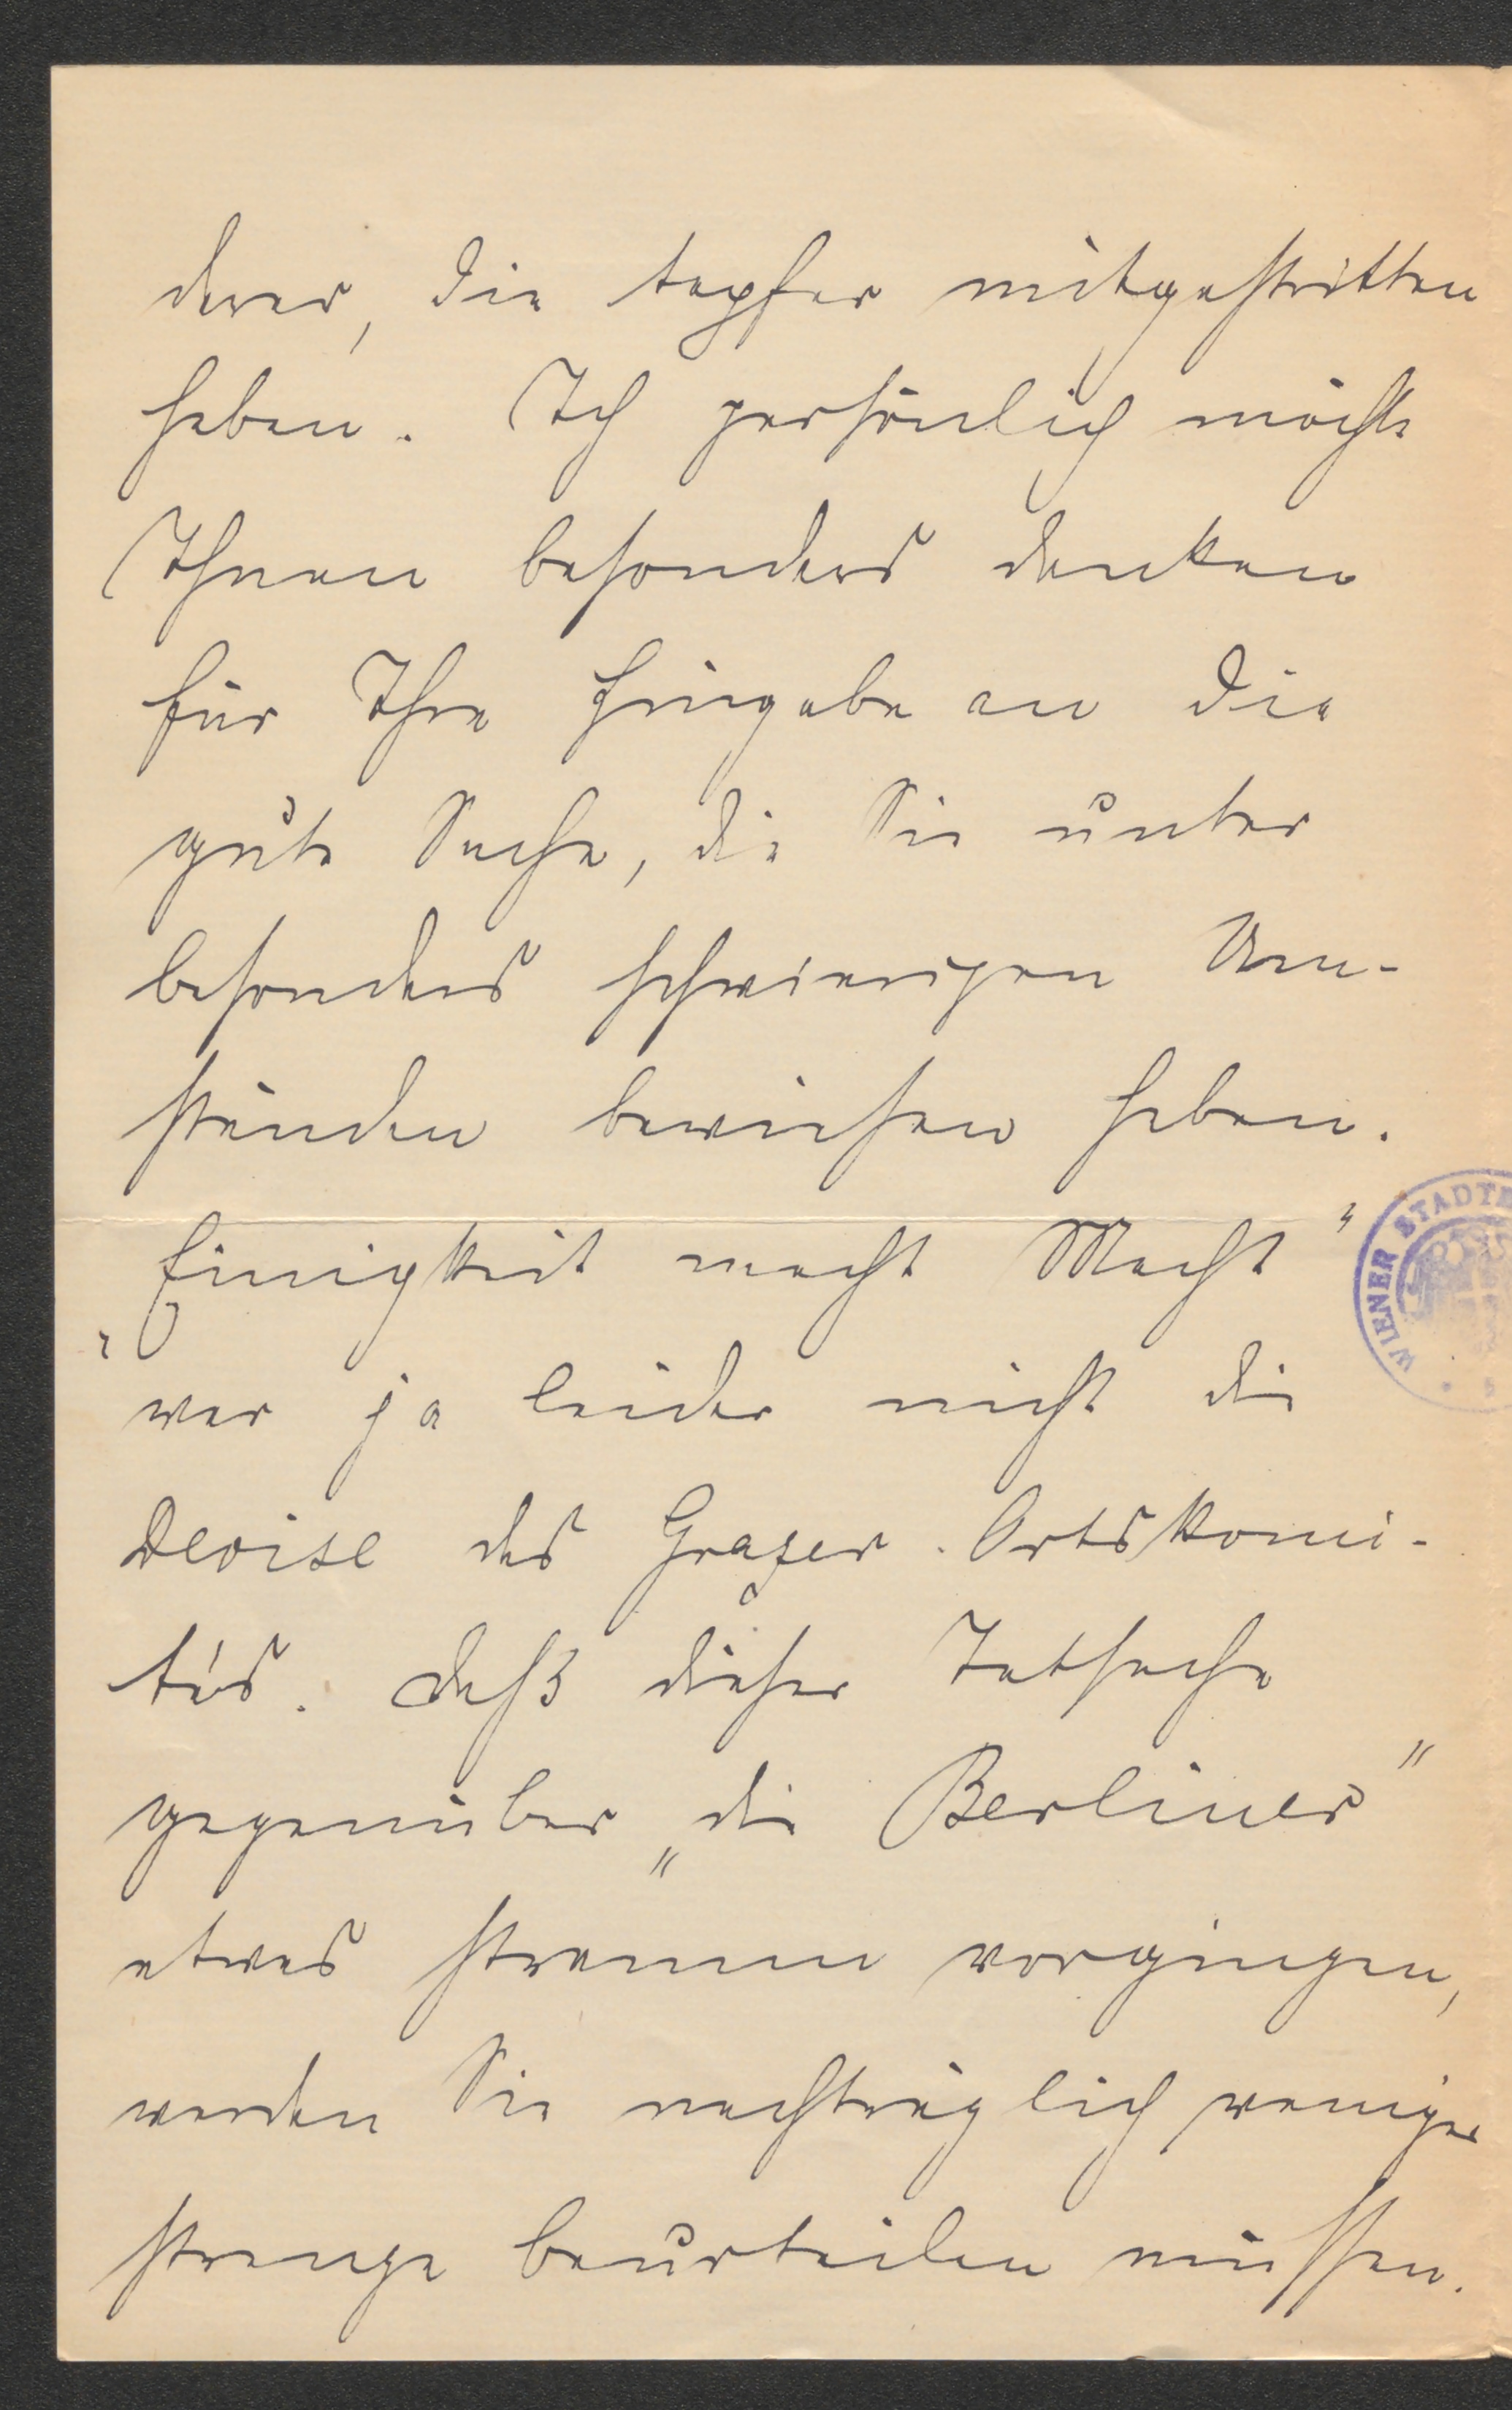 derer, die tapfer mitgestritten
haben. Ich persönlich möchte
Ihnen besonders danken
für Ihre Hingabe an die
gute Sache, die Sie unter
besonders schwierigen Um-
ständen bewiesen haben.
„Einigkeit macht Macht"
war ja leider nicht die
Devise des Grazer Ortskomi-
tés. Daß dieser Tatsache
gegenüber „die Berliner"
etwas stramm vorgingen,
werden Sie nachträglich weniger
strenge beurteilen müssen.
WIENER STADT